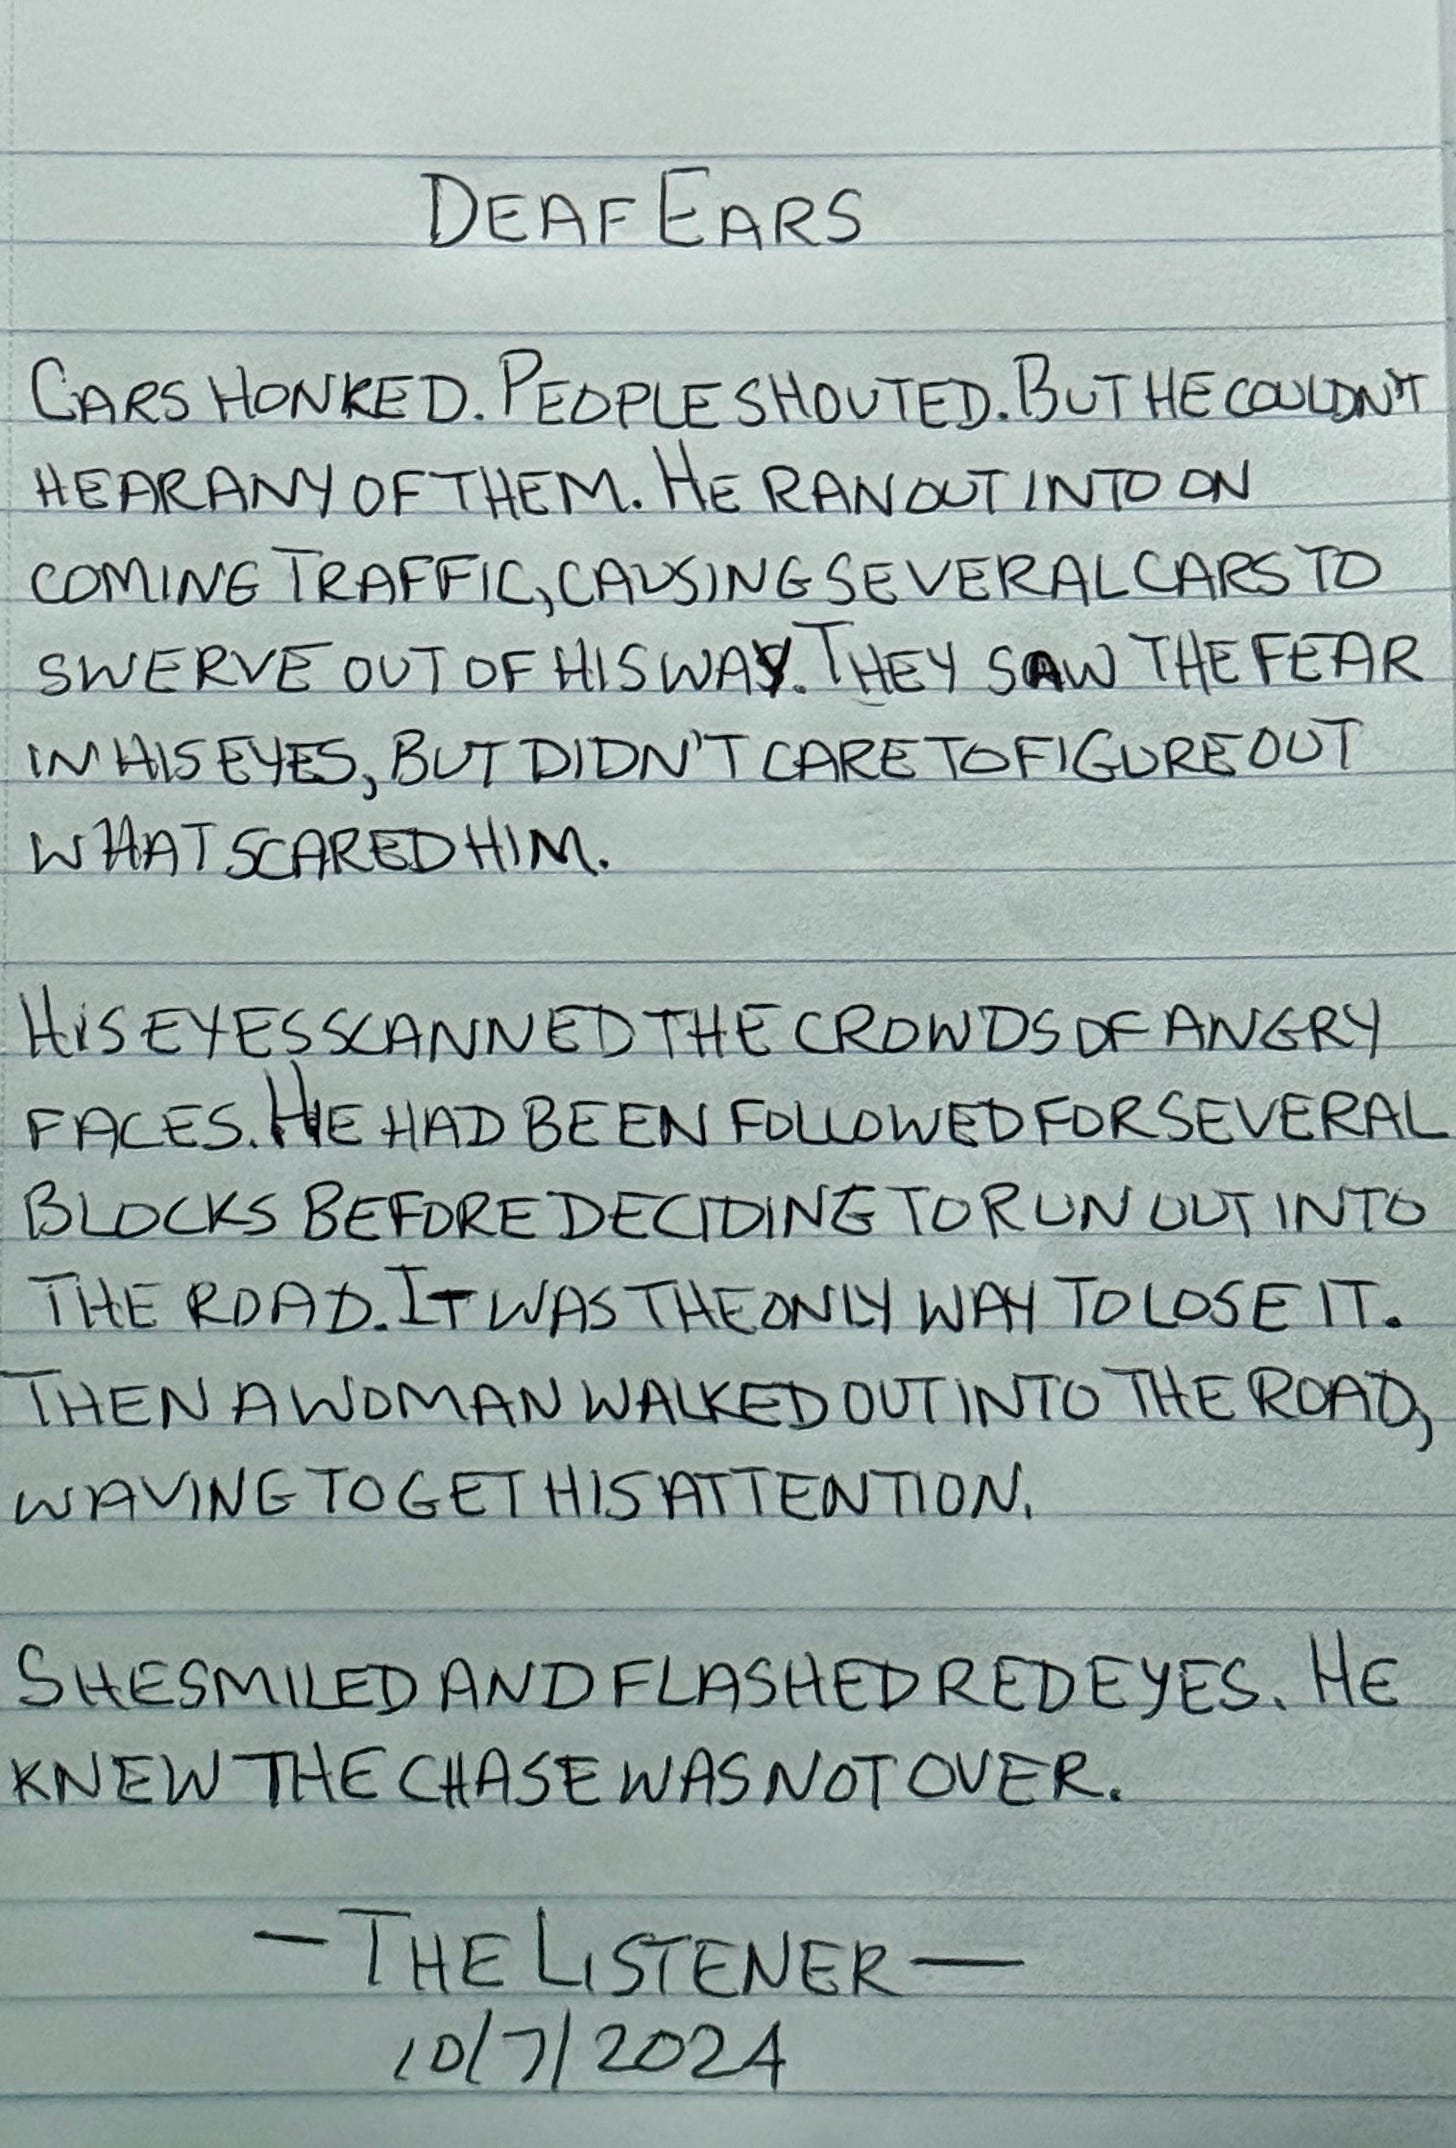 DEAF EARS
CARS HONKED. PEOPLE SHOUTED. BUT HE COULDN'T
HEAR ANY OF THEM. HE RAN OUT INTO ON
COMING TRAFFIC, CAUSING SEVERAL CARS TO
SWERVE OUT OF HIS WAY. THEY SAW THE FEAR
IN HIS EYES, BUT DIDN'T CARE TO FIGURE OUT
WHAT SCARED HIM.
HIS EYES SCANNED THE CROWDS OF ANGRY
FACES. HE HAD BEEN FOLLOWED FOR SEVERAL
BLOCKS BEFORE DECIDING TO RUN OUT INTO
THE ROAD. IT WAS THE ONLY WAY TO LOSE IT.
THEN A WOMAN WALKED OUT INTO THE ROAD,
WAVING TO GET HIS ATTENTION.
SHE SMILED AND FLASHED RED EYES. HE
KNEW THE CHASE WAS NOT OVER.
— THE LISTENER —
10/7/2024